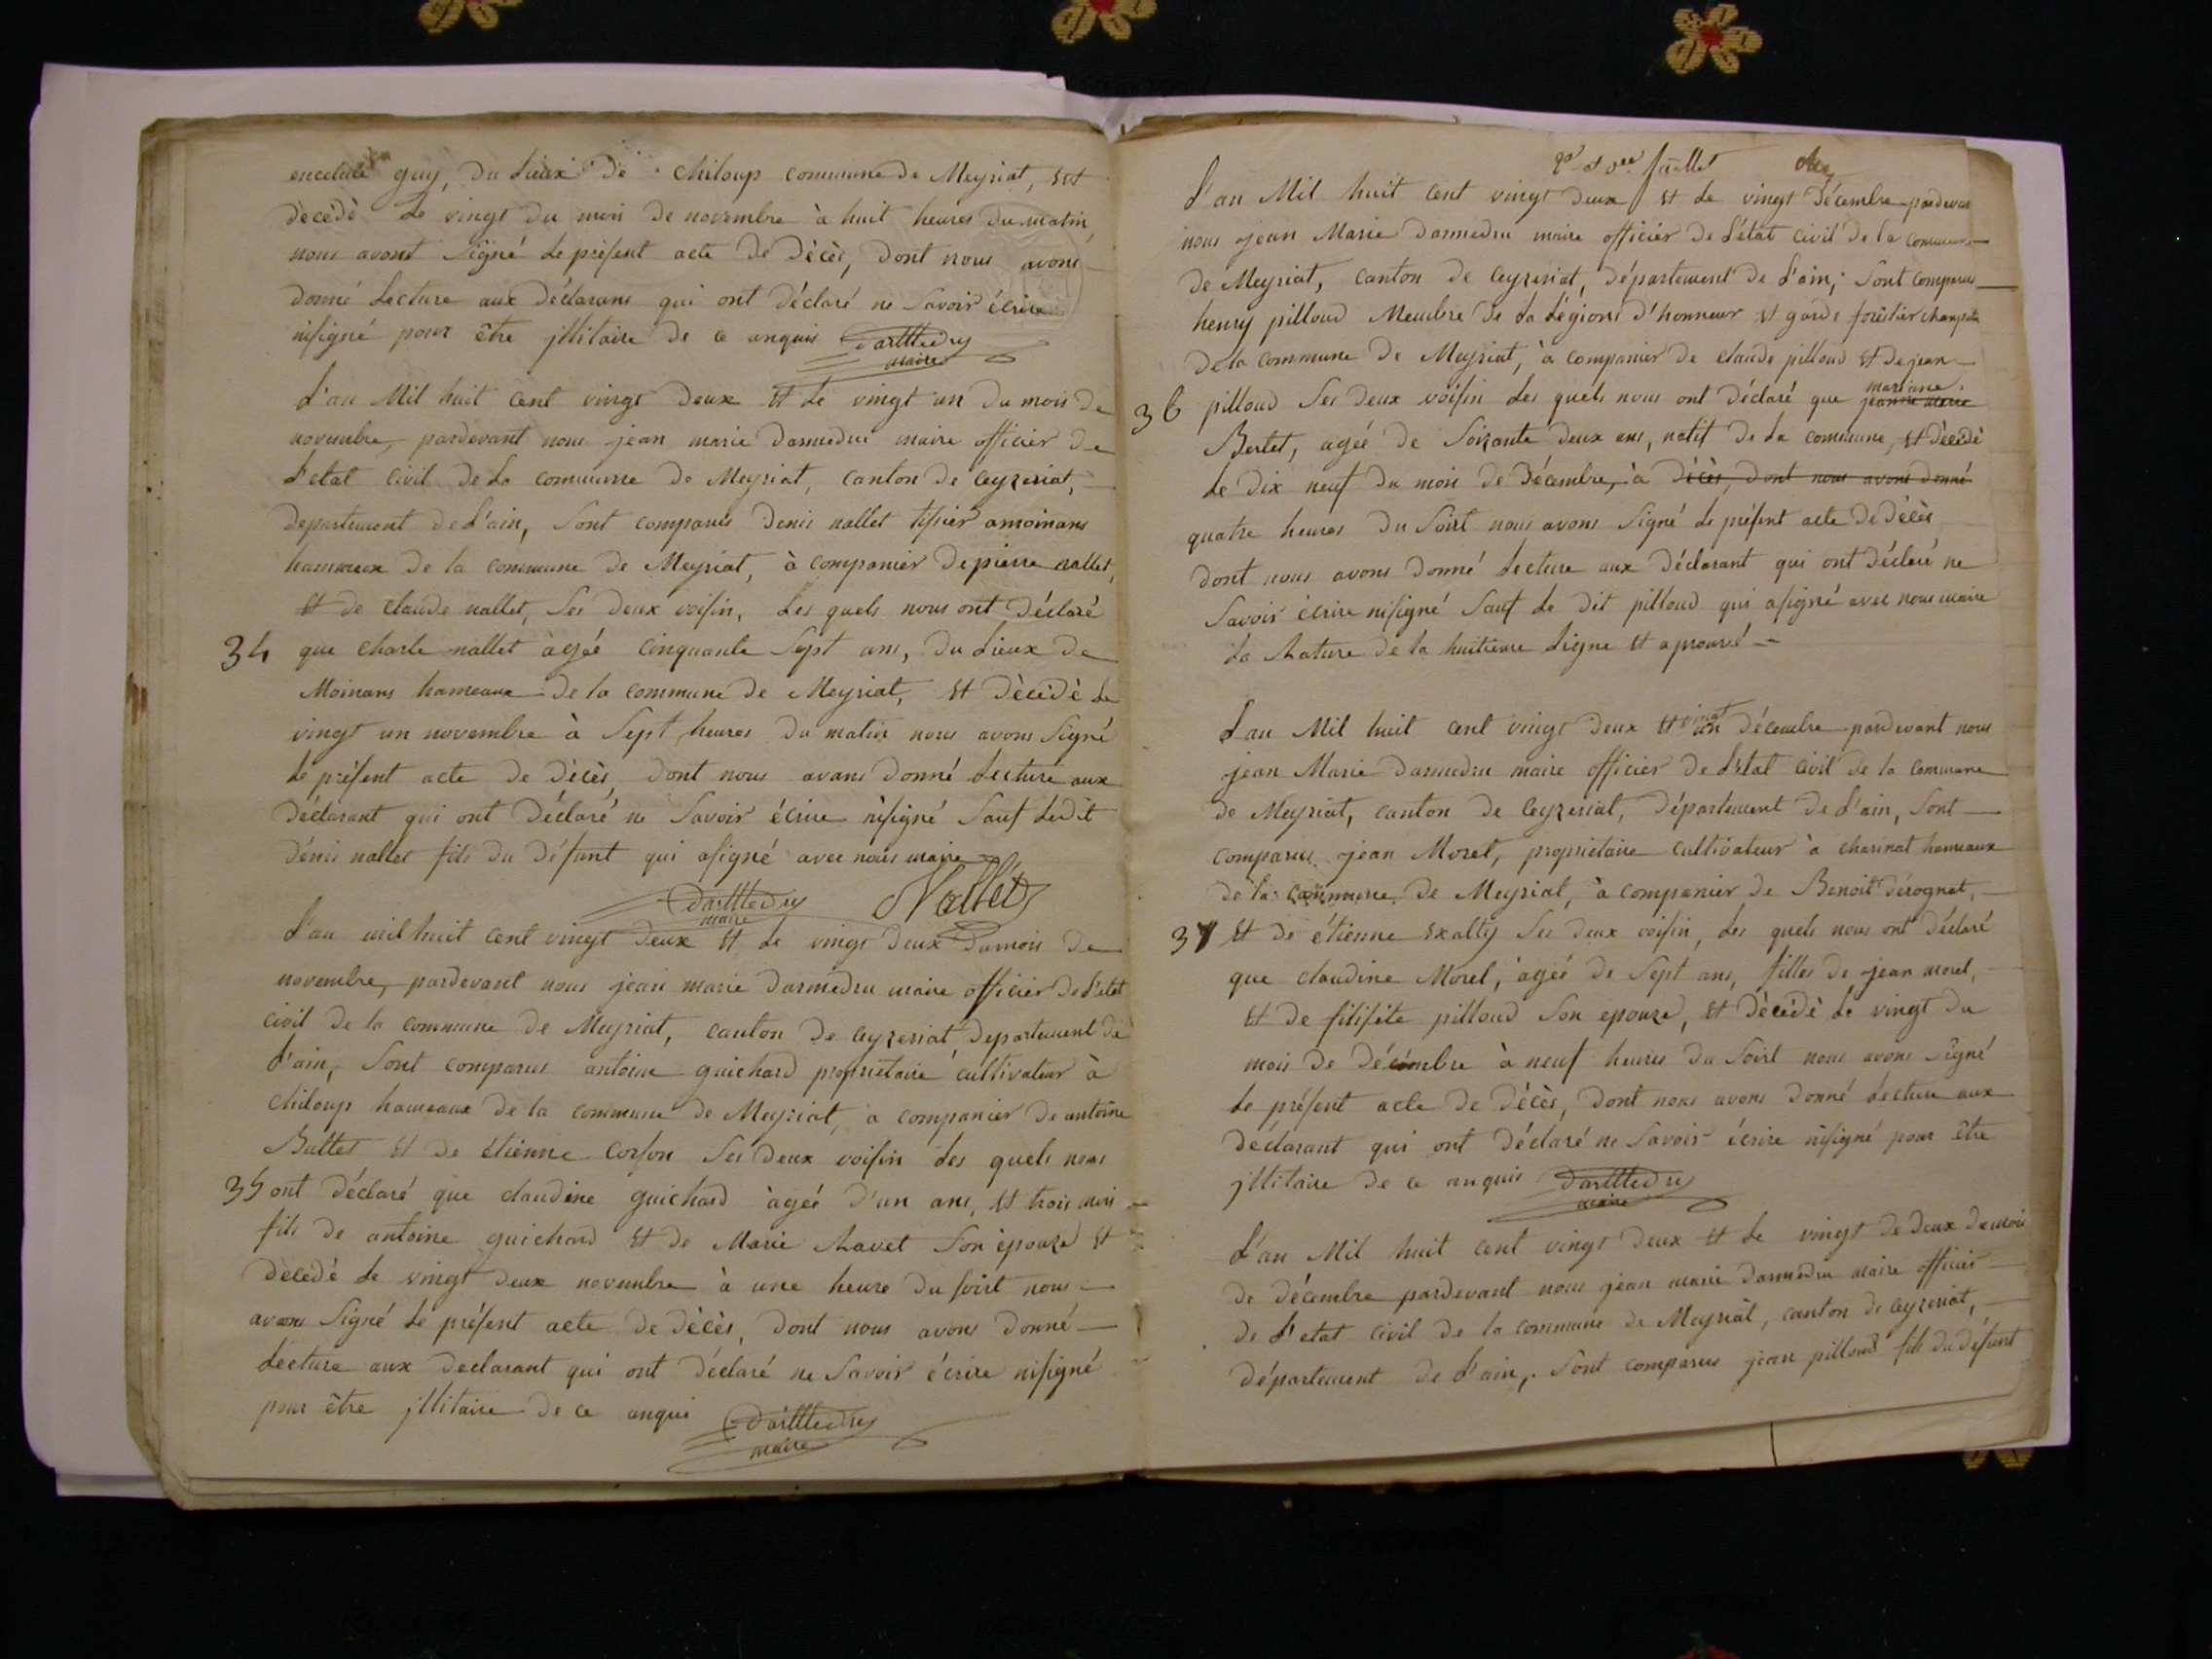 guy, du Lieux de chiloup commune de Meyriat, Est
dècèdè Le vingt du mois de novembre à huit heures du matin,
nous avont Signé Le présent acte de Dècès, dont nous avons
donné Lecture aux déclarans qui ont déclaré ne Savoir écrire
nisigné pour être jllitaire de ce anquis Darmedru
maire
L'an Mil huit Cent vingt deux Et Le vingt un du mois de
novembre, pardevant nous jean marie darmedru maire officier de
L'etat Civil de La commune de Meyriat, Canton de Ceyzeriat,
departement de L'ain, Sont comparus denis nallet tisier amoinans
hammeaux de la commune de Meyriat, à companier de pierre nallet,
Et de Claude nallet, Ses deux voisin, Les quels nous ont déclaré
34 que charle nallet àgéé Cinquante Sept ans, du Lieux de
Moinans hameaux de la commune de Meyriat, Et Dècèdè Le
vingt un novembre à Sept heures du matin nous avons Signé
Le présent acte de Dècès, dont nous avons donné Lecture aux
déclarant qui ont Déclaré ne Savoir écrire nisigné Sauf Ledit
dénis nallet fils du défunt qui asigné avec nous maire
Darmedru Nallet
maire
L'an mil huit Cent vingt deux Et Le vingt deux du mois de
novembre, pardevant nous jean marie darmédru maire officier de L'etat
Civil de la commune de Meyriat, Canton de Ceyzeriat, departement de
L'ain, Sont comparus antoine guichard propriétaire cultivateur à
chiloup hameaux de la commune de Meyriat, à companier de antoine
Buttet Et de étienne Corson Ses deux voisin Les quels nous
35 ont déclaré que claudine guichard àgéé d'un ans, Et trois mois
fils de antoine guichard Et de Marie Ravet Son èpouze Et
Dècèdè Le vingt deux novembre à une heure du soirt nous
avons Signé Le présent acte de dècès, dont nous avons donné
Lecture aux declarant qui ont déclaré ne Savoir écrire nisigné
pour être jllitaire de ce anqui Darmedru
maire
L'an Mil huit Cent vingt deux Et Le vingt Décembre pardevan
nous jean Marie darmedru maire officier de L'état Civil de la commune
de Meyriat, Canton de Ceyzeriat, département de L'ain, Sont comparus
henry pilloud Membre de La Légions d'honneur Et garde forêstier champêtre
de la commune de Meyriat, à companier de claude pilloud Et de jean
mariane
36 pilloud Ses deux voisin Les quels nous ont déclaré que jeanne marie
Bertet, agéé de Soizante deux ans, natif de La commune, Et dècèdè
Le dix neuf du mois de Décembre, à dècès, dont nous avons donné
quatre heures du Soirt nous avons Signé Le présent acte de dècès
dont nous avons donné Lecture aux déclarant qui ont déclaré ne
Savoir écrire nisigné Sauf Le dit pilloud qui asigné avec nous maire
La Rature de la huitieme Ligne Et aprouvé
vingt
L'an Mil huit Cent vingt deux Et un décembre pardevant nous
jean Marie darmedru maire officier de L'Etat Civil de la Commune
de Meyriat, Canton de Ceyzeriat, département de L'ain, Sont
Comparus jean Morel, propriètaire Cultivateur à charinat hameaux
de la commune de Meyriat, à companier de Benoit dérognat,
37 Et de étienne Exalty Ses deux voisin, Les quels nous ont déclaré
que claudine Morel, agéé de Sept ans, filles de jean morel,
Et de filisite pilloud Son epouze, Et Dècèdè Le vingt du
mois de Décembre à neuf heures du Soirt nous avons Signé
Le présent acte de Dècès, dont nous avons donné Lecture aux
declarant qui ont Déclaré ne Savoir écrire nisigné pour être
jllitaire de ce anquis Darmedru
maire
L'an Mil huit Cent vingt deux Et Le vingt de deux du mois
de décembre pardevant nous jean marie darmedru maire officier
de L'etat Civil de la commune de Meyriat, canton de Ceyzeriat,
département de L'ain, Sont comparus jean pilloud fils du défunt